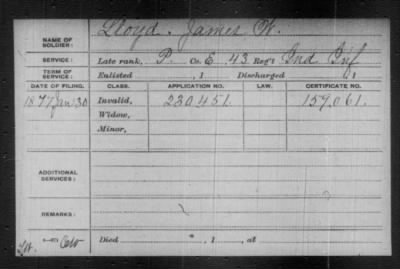 NAME OF SOLDIER: Lloyd, James W.
SERVICE: Late rank, P. Co. E. 43 Reg't Ind Inf
TERM OF SERVICE: Enlisted , 1 Discharged , 1
DATE OF FILING. CLASS. APPLICATION NO. LAW. CERTIFICATE NO.
1877 Jan 30 Invalid, 230451. 159061.
Widow,
Minor,
ADDITIONAL SERVICES:
REMARKS:
Died , 1 , at